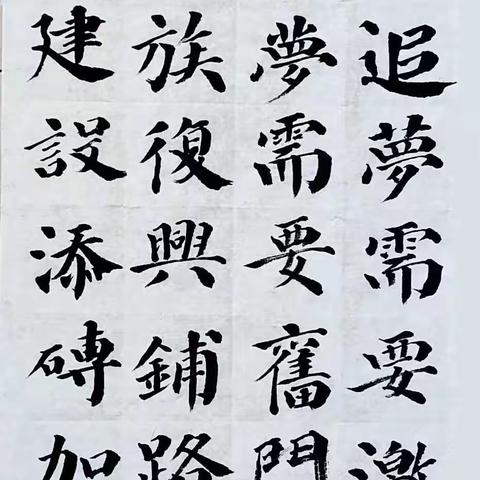 追夢需要激
夢需要奮鬥
族復興鋪路
建設添磚加